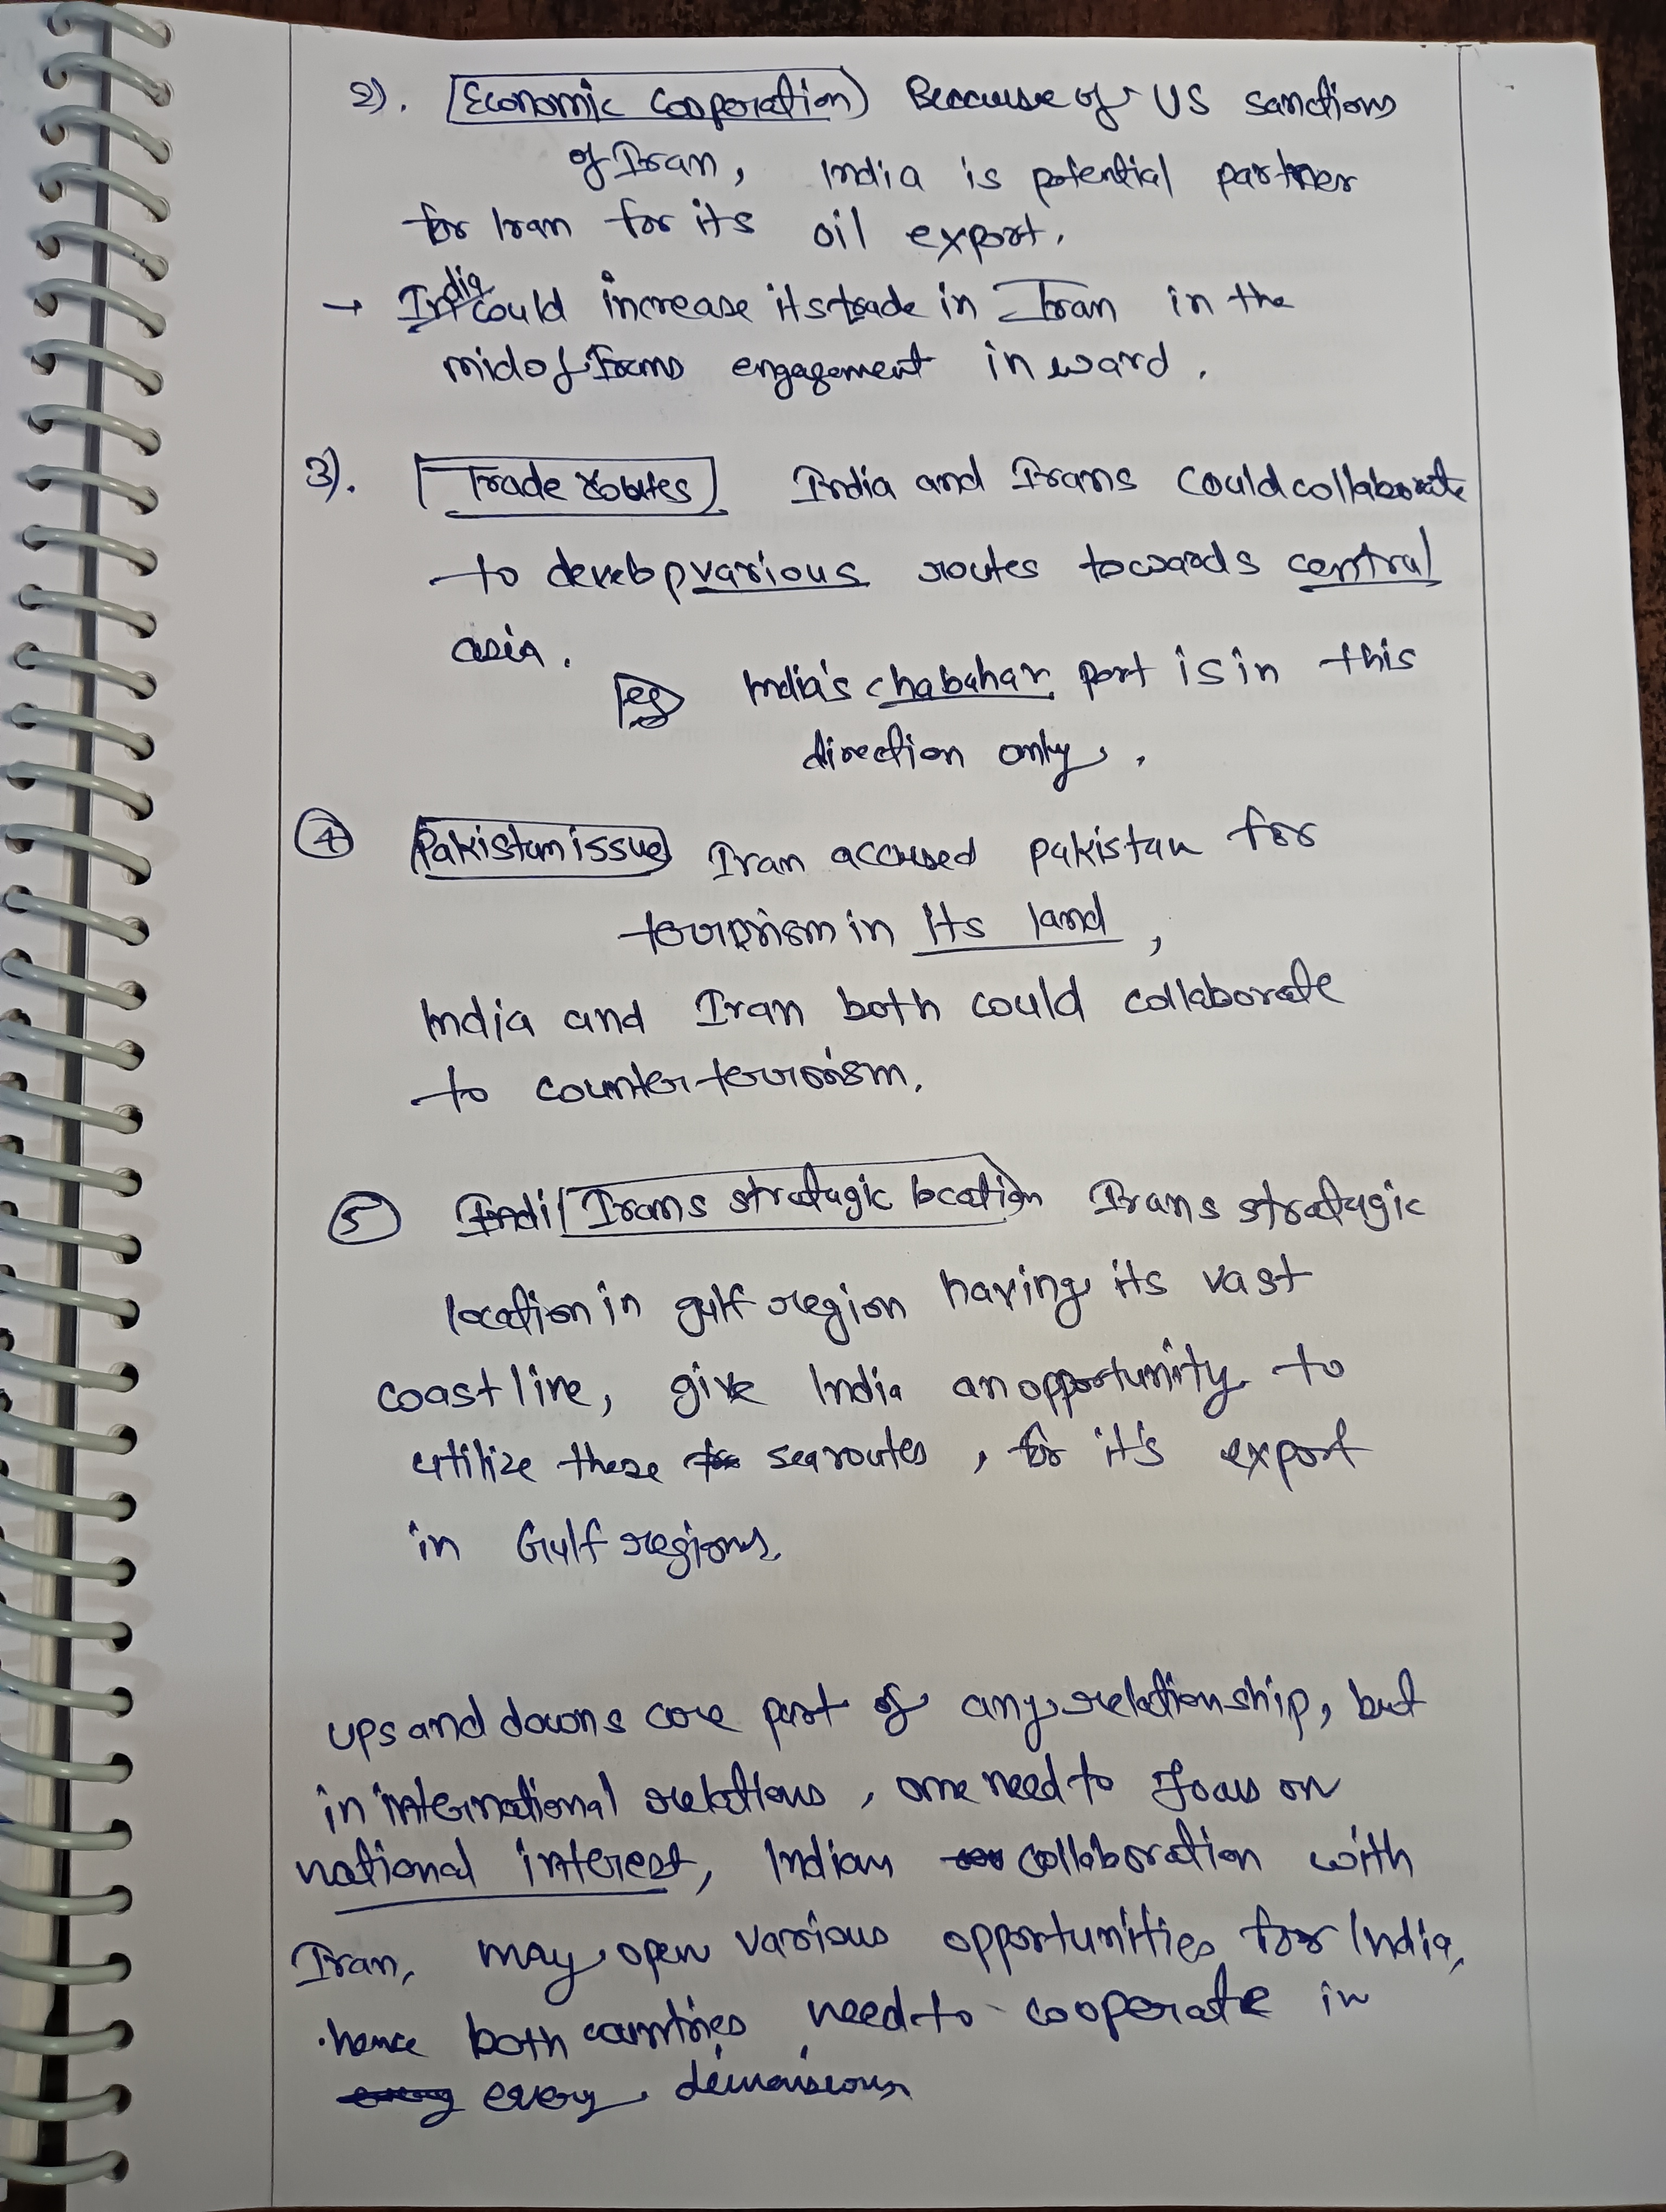 2). Economic Cooperation) Beccause of US sanctions
of Iran, India is potential partner
for Iran for its oil export.
→ India could increase its trade in Iran in the
mid of Irans engagement in ward.
3). Trade routes India and Irans could collaborate
to develop various routes towards central
asia.
eg India's chabahar port is in this
direction only.
4 Pakistan issue Iran accused pakistan for
terrorism in its land,
India and Iran both could collaborate
to counter terrorism.
5 Indi Irans stratagic location Irans stratagic
location in gulf region having its vast
coastline, give India an opportunity to
utilize these sea routes, for it's export
in Gulf regions.
ups and downs are part of any relationship, but
in international relations, one need to focus on
national interest, Indian collaboration with
Iran, may open various opportunities for India,
hence both countries need to cooperate in
every every dimensions